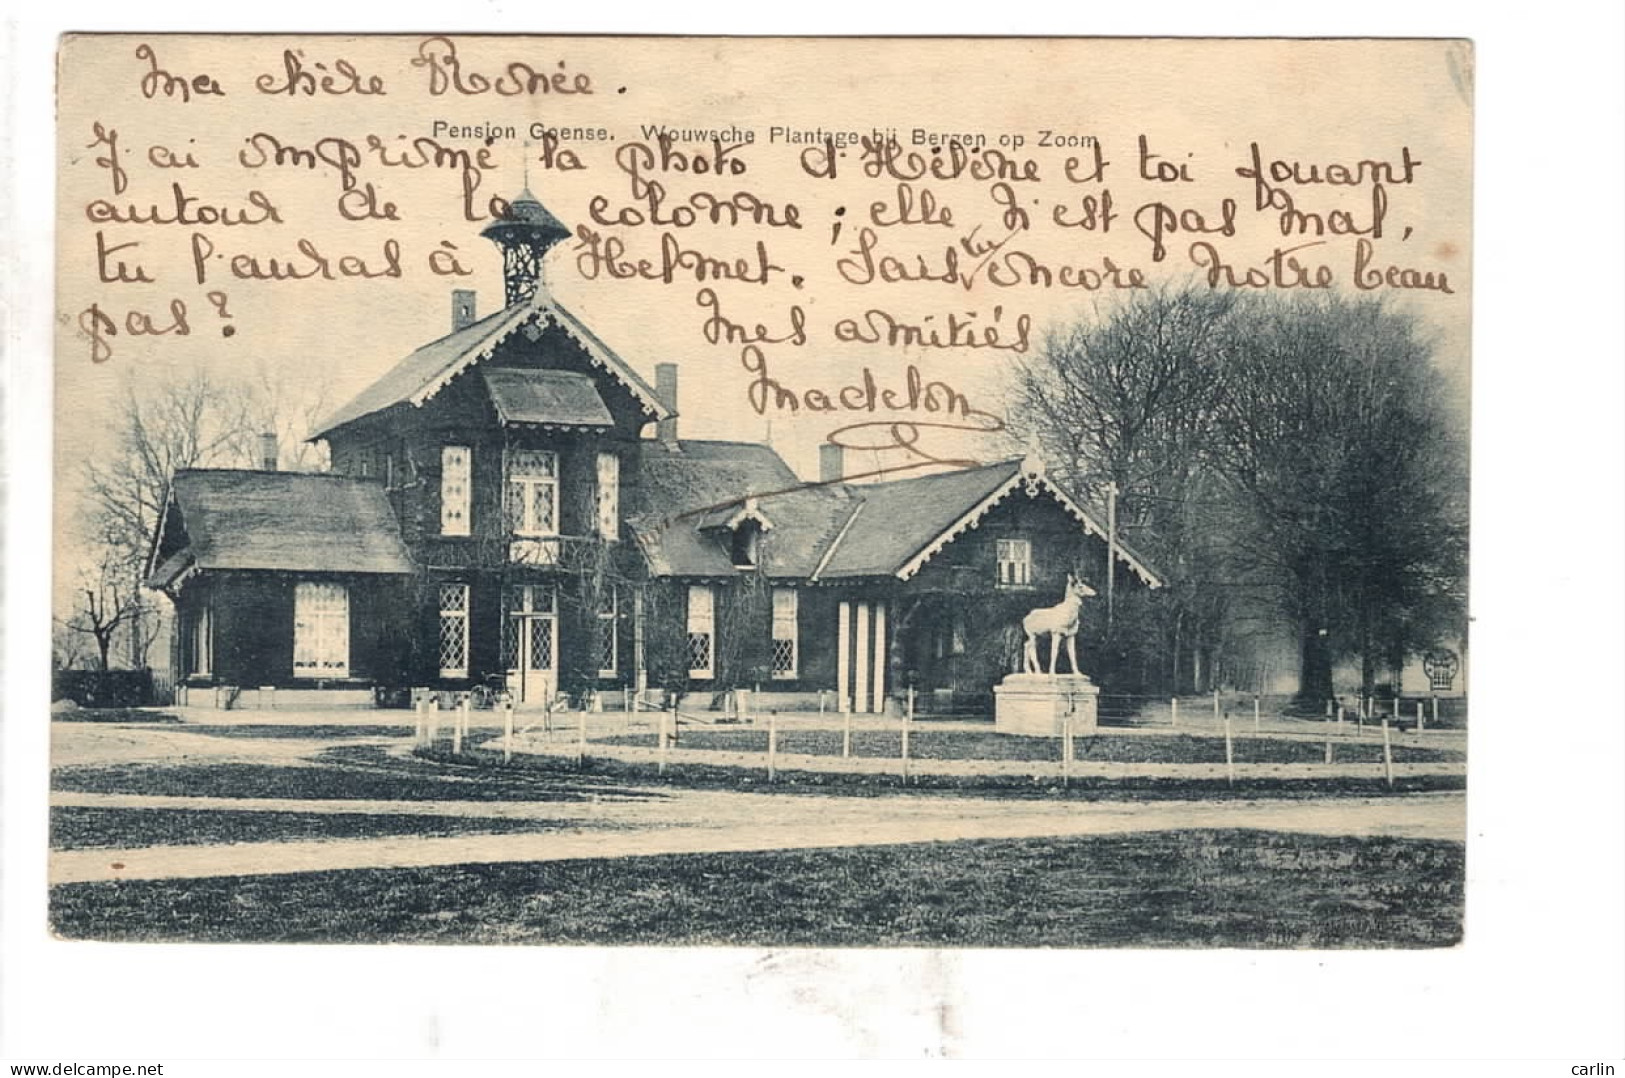 Ma chère Renée.
Pension Goense. Wouwsche Plantage bij Bergen op Zoom
J'ai imprimé la photo d'Hélène et toi jouant
autour de la colonne; elle n'est pas mal,
tu l'auras à Helmet. Sais tu encore notre beau
pas?
Mes amitiés
Madelon
carlin